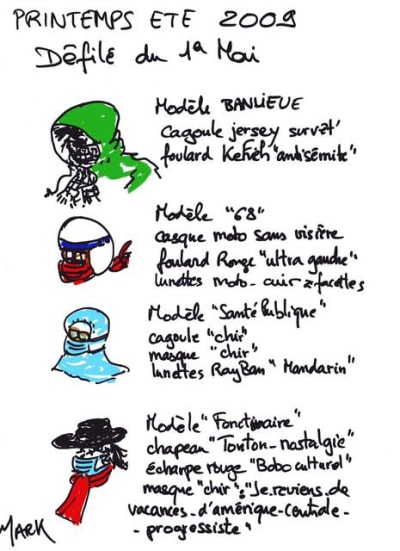 PRINTEMPS ETE 2009
Défilé du 1er Mai
Modèle BANLIEUE
cagoule jersey survet'
foulard Kefieh "antisémite"
Modèle "68"
casque moto sans visière
foulard Rouge "ultra gauche"
lunettes moto-cuir 2 facettes
Modèle "Santé Publique"
cagoule "chir"
masque "chir"
lunettes RayBan "Mandarin"
Modèle "Fonctionaire"
chapeau "Tonton-nostalgie"
écharpe rouge "Bobo culturel"
masque "chir": "Je reviens de
vacances-d'amérique-centrale-
-progressiste"
MARK